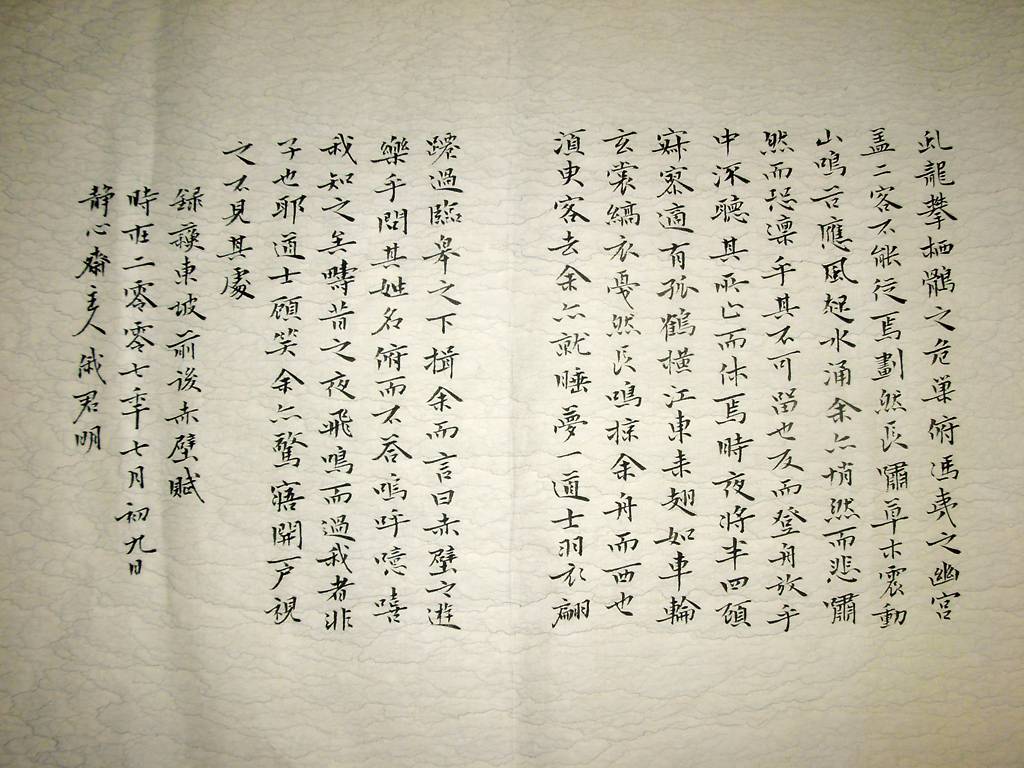 虬龍攀栖鶻之危巢俯馮夷之幽宮
盖二客不能從焉劃然長嘯草木震動
山鳴谷應風起水涌余亦悄然而悲肅
然而恐凜乎其不可留也反而登舟放乎
中流聽其所止而休焉時夜將半四顧
寂寥適有孤鶴橫江東来翅如車輪
玄裳縞衣戛然長鳴掠余舟而西也
須臾客去余亦就睡夢一道士羽衣翩
躚過臨皋之下揖余而言曰赤壁之遊
樂乎問其姓名俯而不荅嗚呼噫嘻
我知之矣疇昔之夜飛鳴而過我者非
子也耶道士顧笑余亦驚寤開戶視
之不見其處
録蘇東坡前後赤壁賦
時在二零零七年七月初九日
静心齋主人成君明